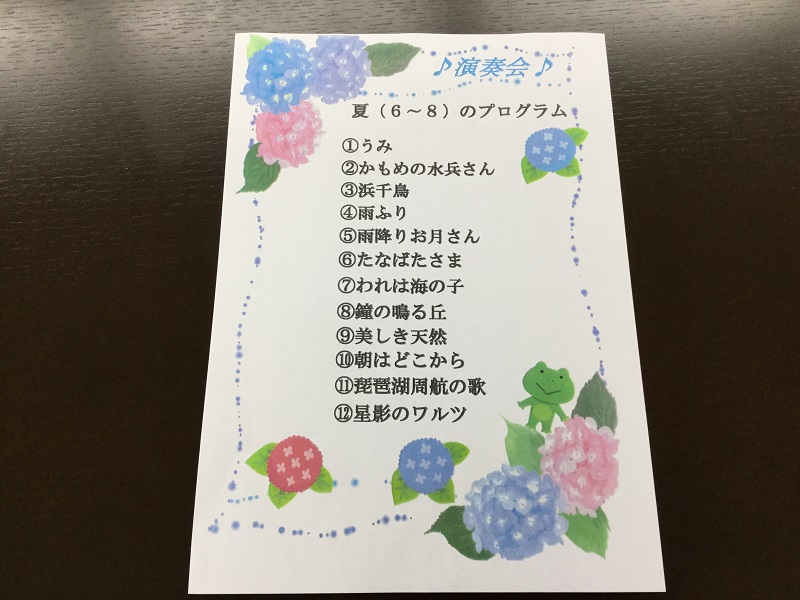 ♪演奏会♪
夏（６～８）のプログラム
①うみ
②かもめの水兵さん
③浜千鳥
④雨ふり
⑤雨降りお月さん
⑥たなばたさま
⑦われは海の子
⑧鐘の鳴る丘
⑨美しき天然
⑩朝はどこから
⑪琵琶湖周航の歌
⑫星影のワルツ